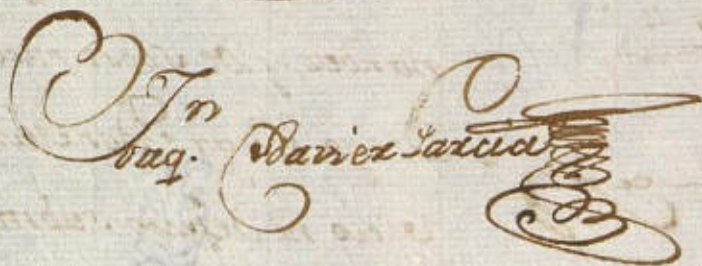 Joaq.n Xavier Garcia